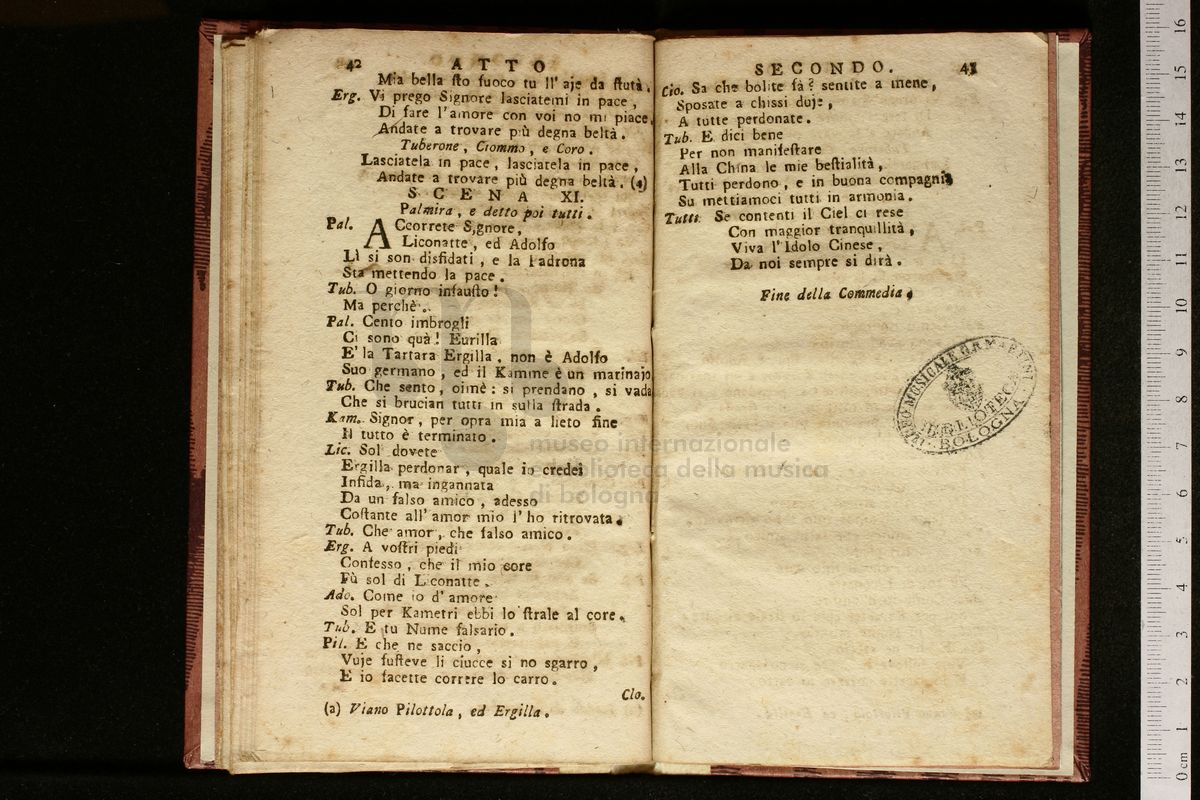 42 ATTO
Mia bella sto fuoco tu ll' aje da stutà.
Erg. Vi prego Signore lasciatemi in pace,
Di fare l'amore con voi no mi piace,
Andate a trovare più degna beltà.
Tuberone, Ciommo, e Coro.
Lasciatela in pace, lasciatela in pace,
Andate a trovare più degna beltà. (a)
SCENA XI.
Palmira, e detto poi tutti.
Pal. ACcorrete Signore,
Liconatte, ed Adolfo
Lì si son disfidati, e la Padrona
Sta mettendo la pace.
Tub. O giorno infausto!
Ma perchè..
Pal. Cento imbrogli
Ci sono quà! Eurilla
E' la Tartara Ergilla, non è Adolfo
Suo germano, ed il Kamme è un marinajo
Tub. Che sento, oimè: si prendano, si vada
Che si brucian tutti in sulla strada.
Kam. Signor, per opra mia a lieto fine
Il tutto è terminato.
Lic. Sol dovete
Ergilla perdonar, quale io credei
Infida, ma ingannata
Da un falso amico, adesso
Costante all' amor mio l' ho ritrovata.
Tub. Che amor, che falso amico.
Erg. A vostri piedi
Confesso, che il mio core
Fù sol di Liconatte.
Ado. Come io d' amore
Sol per Kametri ebbi lo strale al core.
Tub. E tu Nume falsario.
Pil. E che ne saccio,
Vuje fusteve li ciucce si no sgarro,
E io facette correre lo carro.
Cio.
(a) Viano Pilottola, ed Ergilla.
SECONDO. 43
Cio. Sa che bolite fà? sentite a mene,
Sposate a chissi duje,
A tutte perdonate.
Tub. E dici bene
Per non manifestare
Alla China le mie bestialità,
Tutti perdono, e in buona compagnia
Su mettiamoci tutti in armonia.
Tutti. Se contenti il Ciel ci rese
Con maggior tranquillità,
Viva l' Idolo Cinese,
Da noi sempre si dirà.
Fine della Commedia.
MUSEO MUSICALE G.B. MARTINI
BIBLIOTECA
BOLOGNA
museo internazionale
e biblioteca della musica
di bologna
0 cm 1 2 3 4 5 6 7 8 9 10 11 12 13 14 15 16